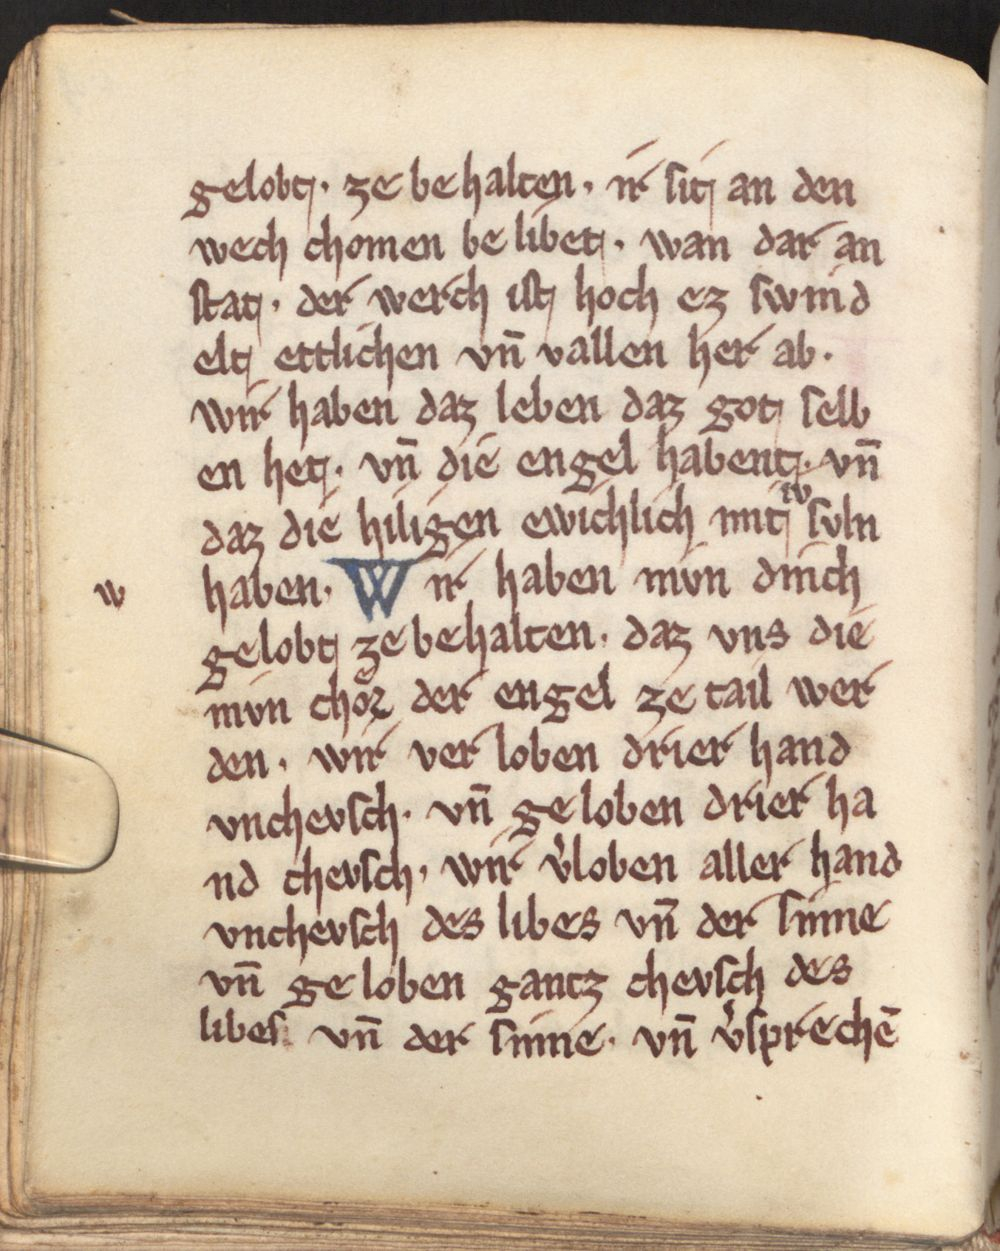 gelobt · ze behalten · ir sit an den
wech chomen be libet · wan dar an
stat · der werch ist hoch ez swind
elt ettlichen vn̄ vallen her ab ·
wir haben daz leben daz got selb
en het · vn̄ die engel habent · vn̄
daz die hiligen ewichlich mit iv svln
haben · Wir haben nivn dinch
w
gelobt ze behalten · daz vns die
nivn choͤr der engel ze tail wer
den · wir ver loben drier hand
vnchevsch · vn̄ ge loben drier ha
nd chevsch · wir v͛loben aller hand
vnchevsch des libes vn̄ der sinne
vn̄ ge loben gantz chevsch des
libes vn̄ der sinne · vn̄ v͛sprechē